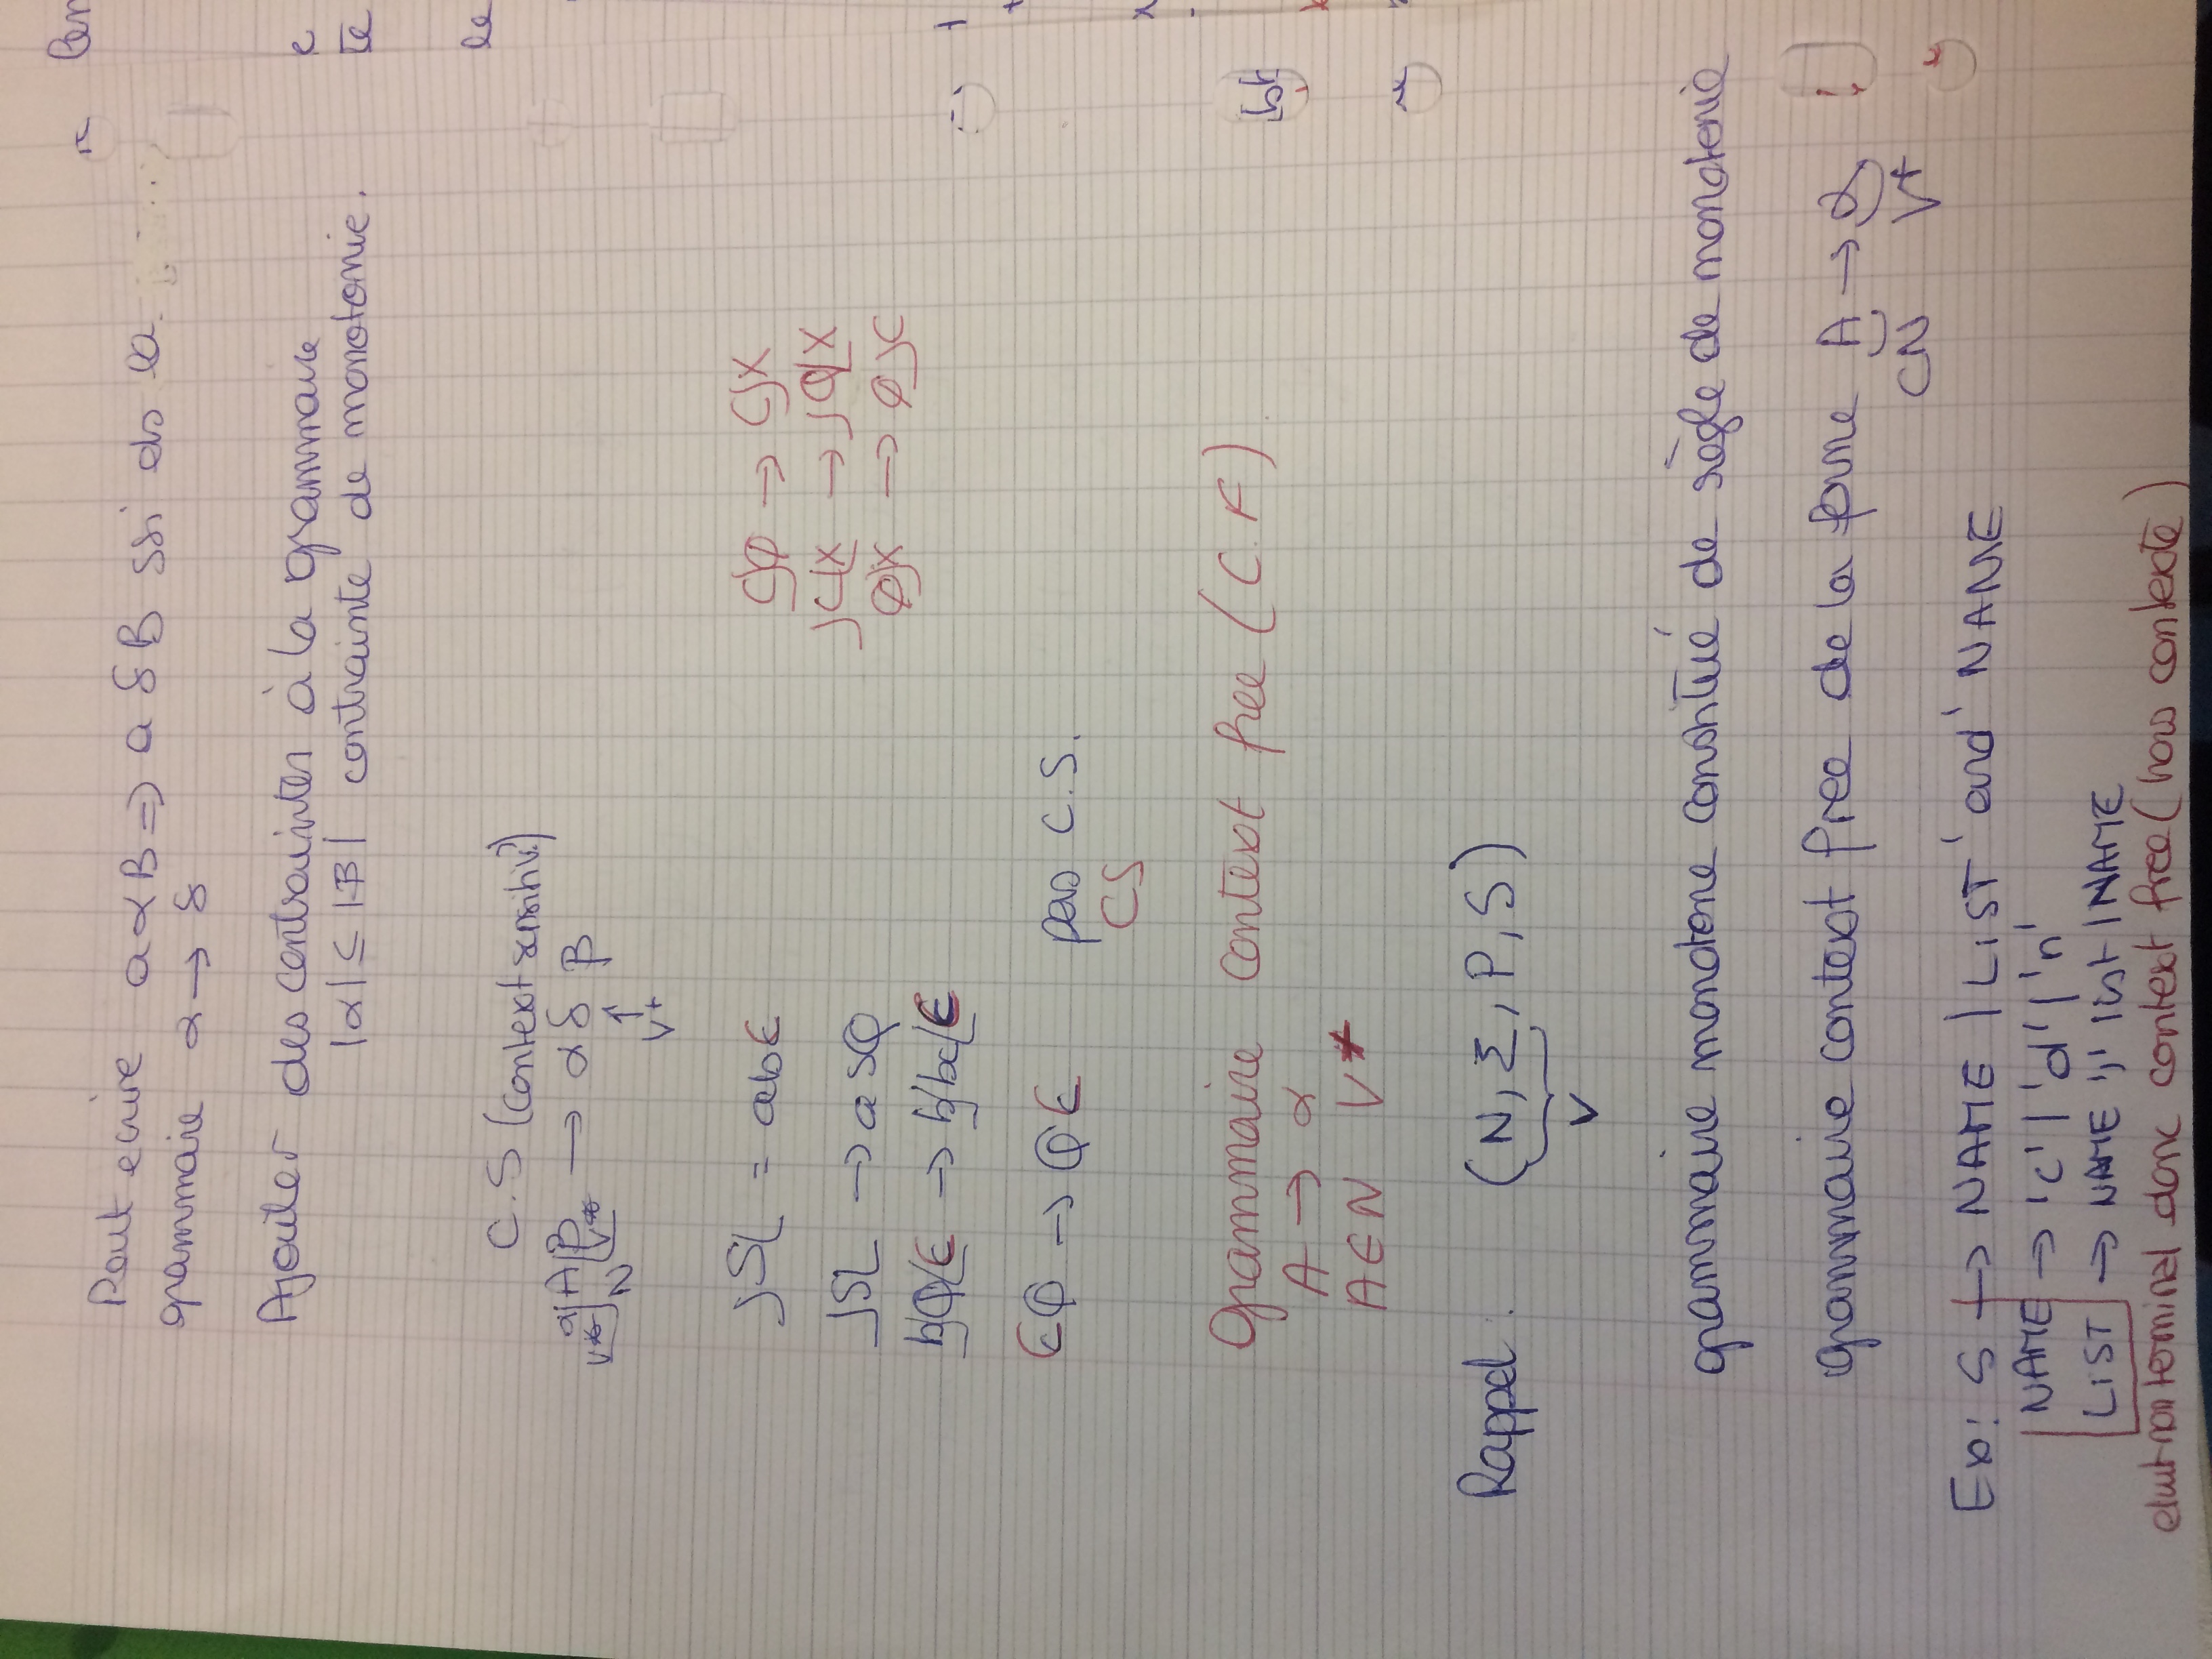 Peut ecrire aαB => a δ B ssi ds la
grammaire α → δ
Ajouter des contraintes à la grammaire
|α| ≤ |B| contrainte de monotomie.
C.S (context sensitiv?)
α A B → α δ β
V* N V*
↑
V+
S = abC
S → a S Q
b Q C → b bc C
C Q → Q C pas C.S.
CS
C Q → C X
C X → Q X
Q X → Q C
Grammaire context free (C.F)
A → α
A ∈ N V*
Rappel : (N, Σ, P, S)
V
grammaire monotone constitué de règle de monotonie
grammaire context free de la forme A → α
∈N V+
Ex: S → NAME | LIST 'and' NAME
NAME → 'c' | 'd' | 'n'
LIST → NAME ',' list | NAME
elmt non terminal donc context free (hors contexte)